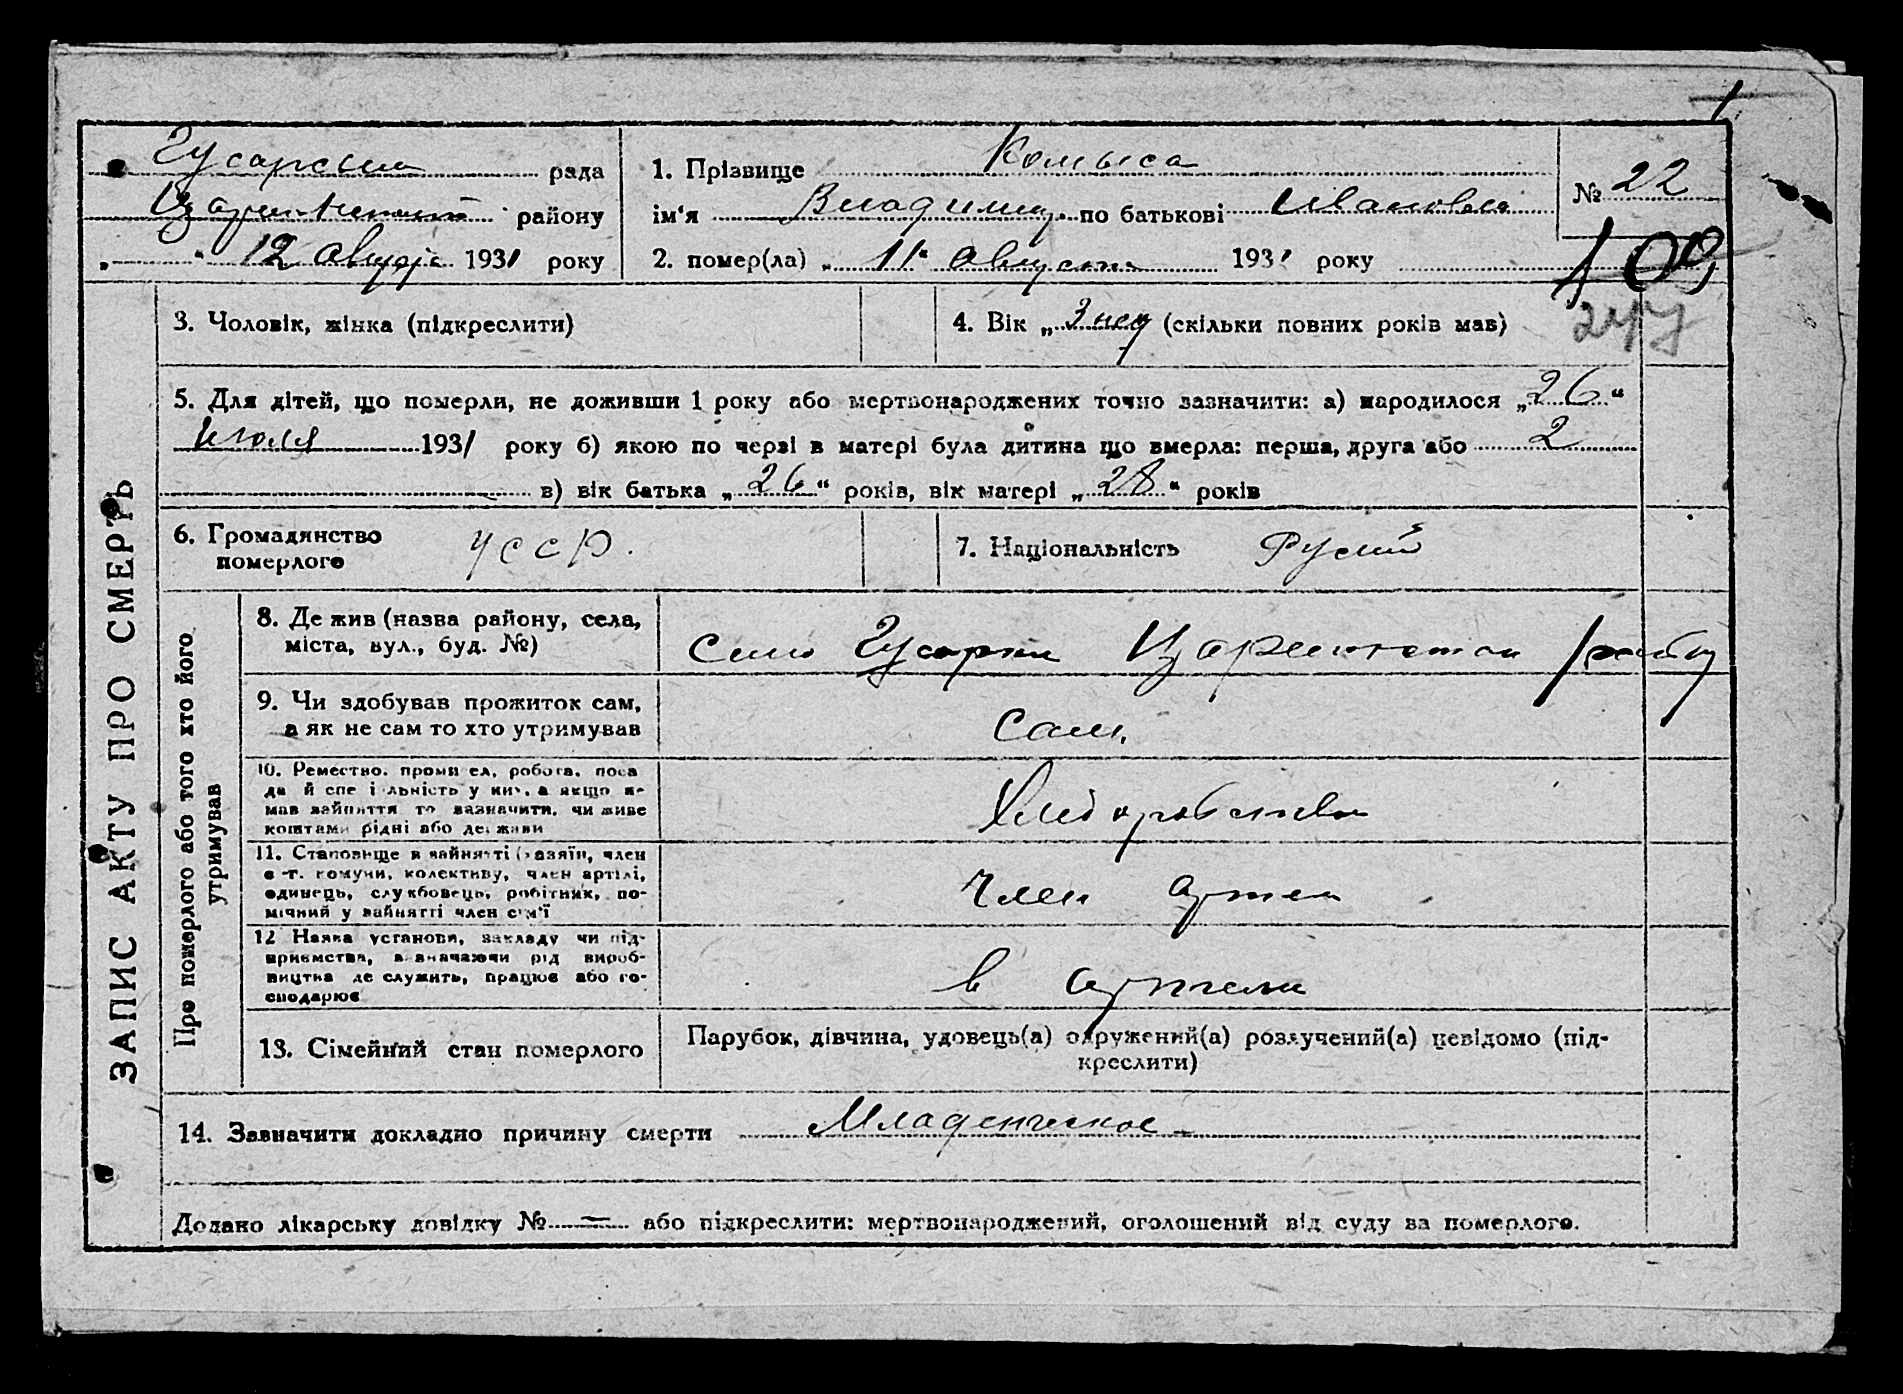 Гусарский рада
району
" " 12 август 1931 року
1. Прізвище Комыса
ім'я Владимир по батькові Иванович
2. помер(ла) „ 11 " августа 1931 року
№ 22
109
3. Чоловік, жінка (підкреслити)
4. Вік „ 3 нед (скільки повних років мав)
5. Для дітей, що померли, не доживши 1 року або мертвонароджених точно зазначити: а) народилося „ 26 “
июля 1931 року б) якою по черзі в матері була дитина що вмерла: перша, друга або 2
в) вік батька „ 26 “ років, вік матері „ 28 “ років
6. Громадянство
померлого
УССР.
7. Національність Руский
ЗАПИС АКТУ ПРО СМЕРТЬ
Про померлого або того хто його
утримував
8. Де жив (назва району, села,
міста, вул., буд. №)
Село Гусарки
9. Чи здобував прожиток сам,
а як не сам то хто утримував
Сам
10. Ремество, промисел, робота, поса
да й спеціальність у них, а якщо не
мав зайняття то вазначити, чи живе
коштами рідні або держави
Хлеборобство
11. Становище в зайнятті (хазяїн, член
с-г. комуни, колективу, член артілі,
одинець, службовець, робітник, по-
мічний у зайнятті член сім'ї
Член артел
12 Назва установи, закладу чи під-
приємства, визначаючи рід вироб-
ництва де служить, працює або го-
сподарює
в артели
13. Сімейний стан померлого
Парубок, дівчина, удовець(а) одружений(а) розлучений(а) невідомо (під-
креслити)
14. Зазначити докладно причину смерти Младенческое
Додано лікарську довідку № — або підкреслити: мертвонароджений, оголошений від суду за померлого.